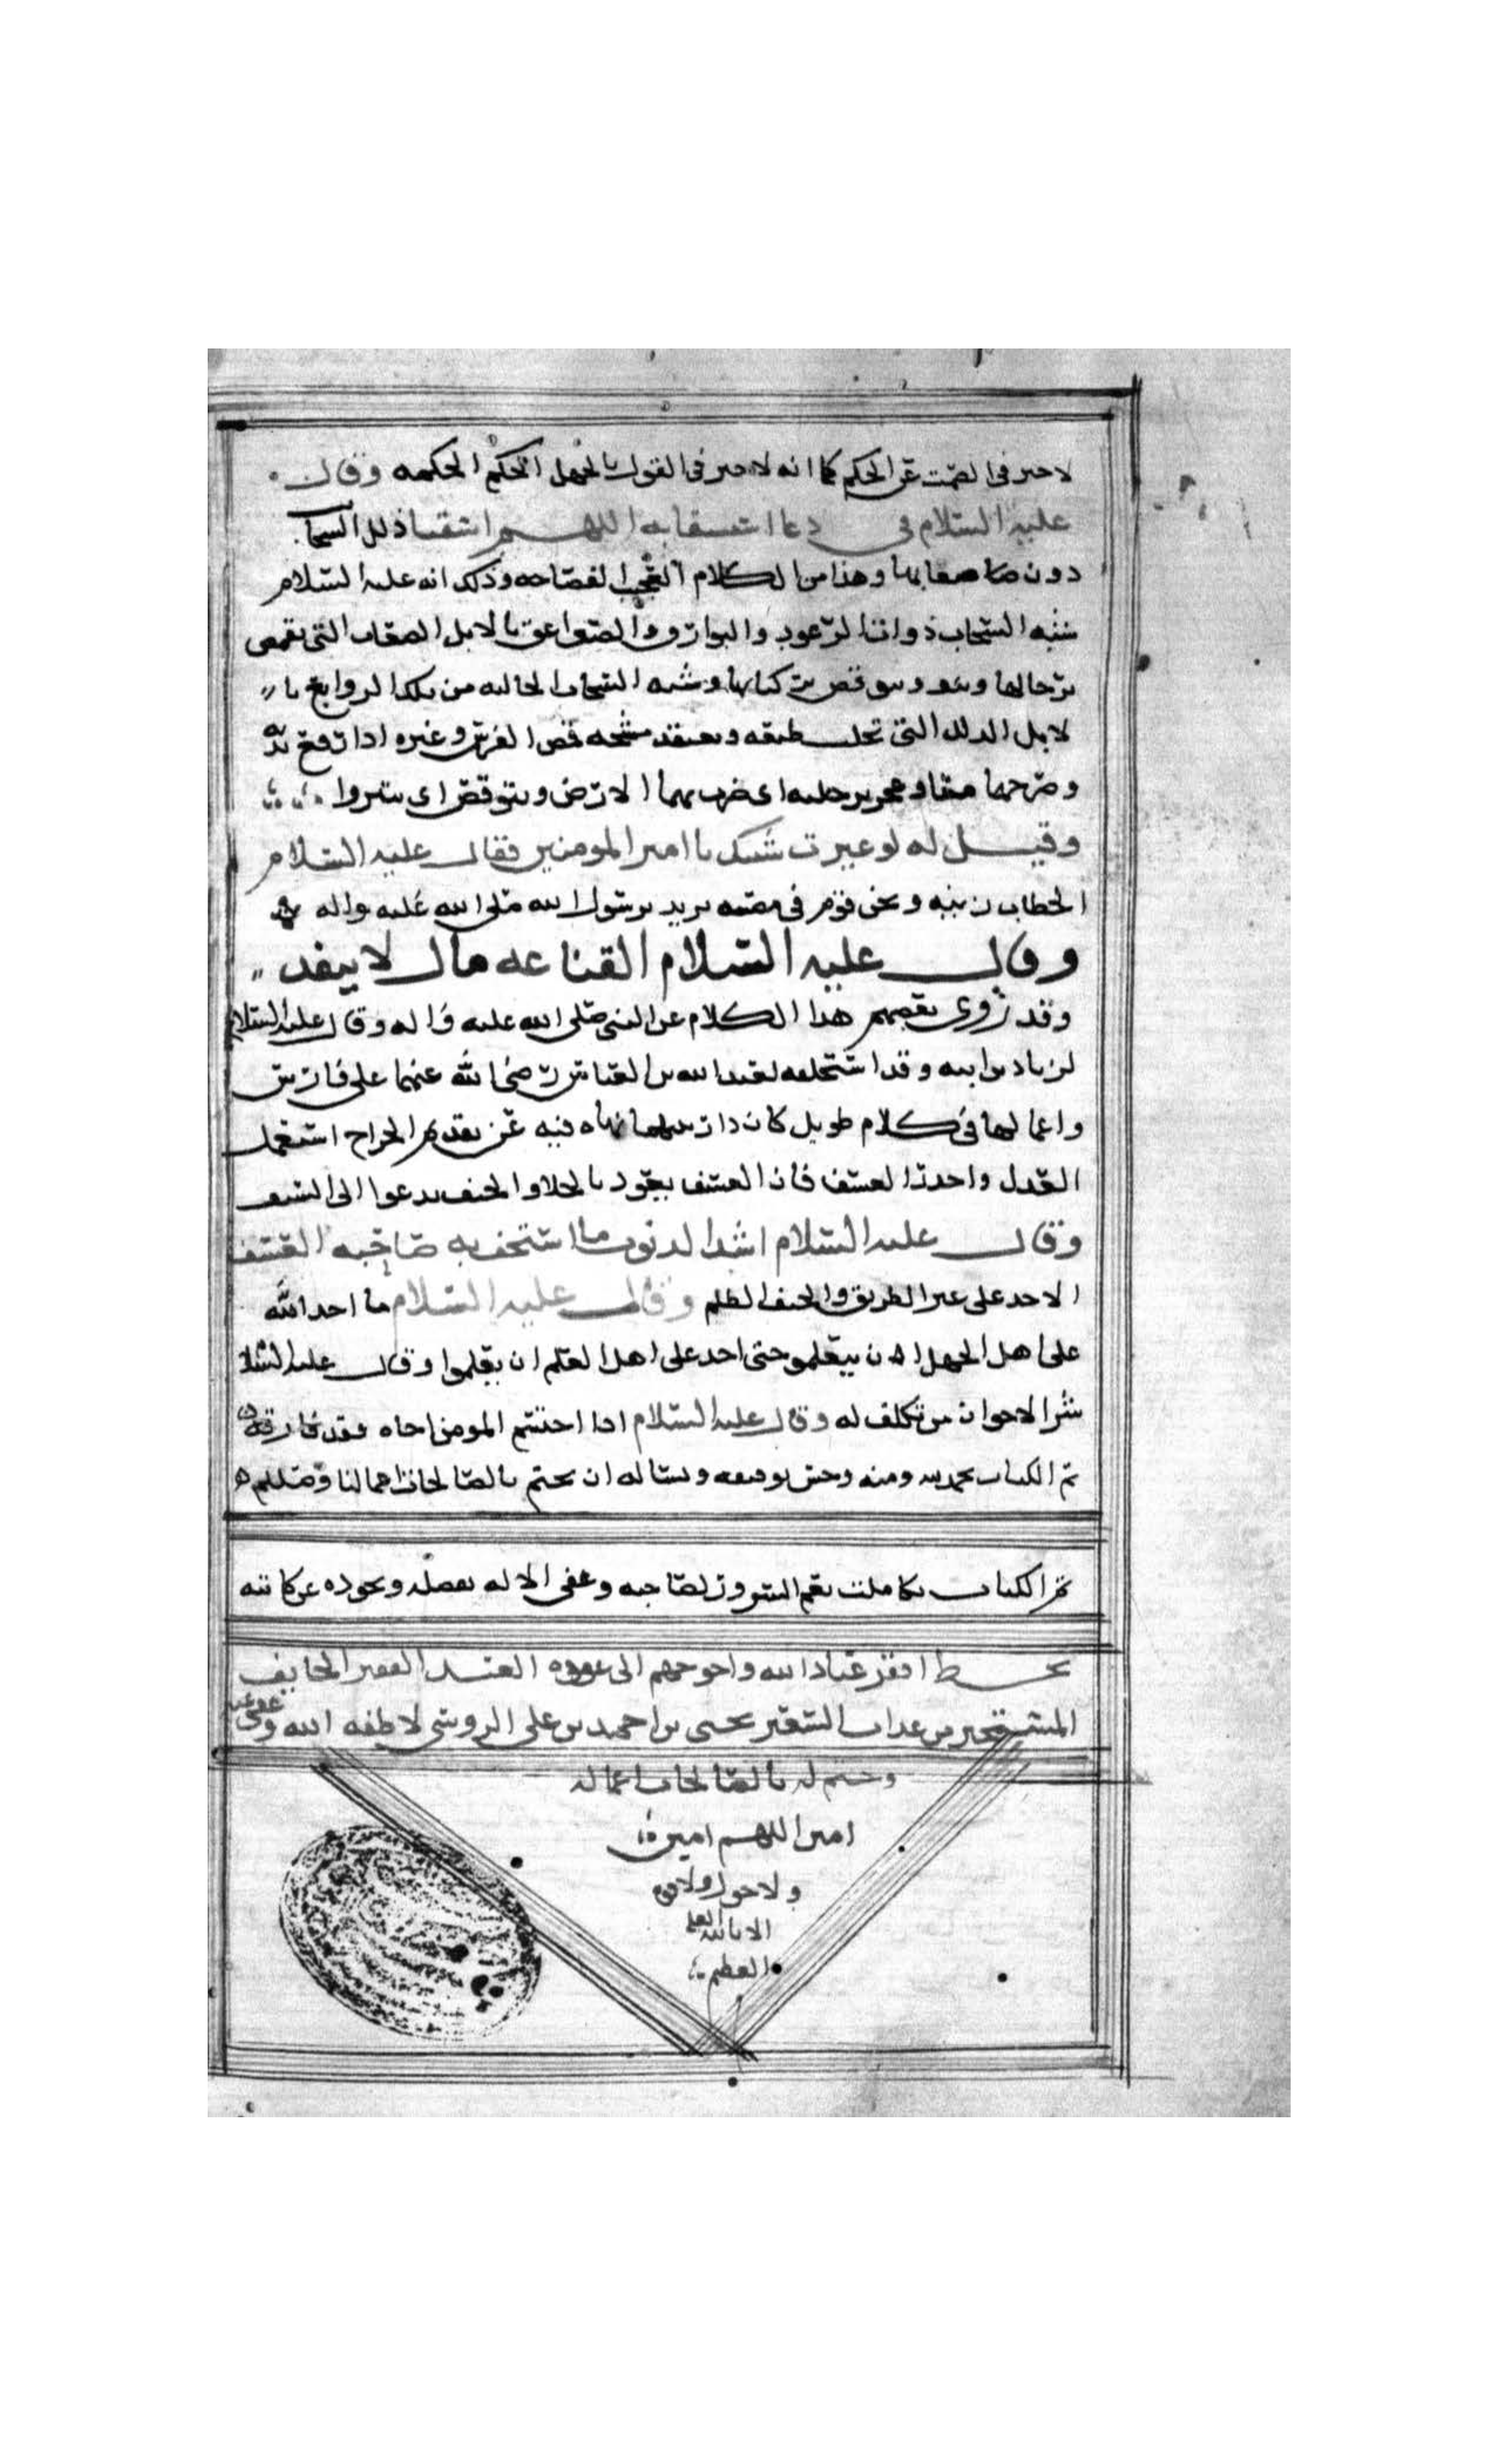 لا خير في الصمت عن الحكم كما انه لا خير في القول بالجهل الحكم الحكمه وقال
عليه السلام في دعا استسقا به اللهم اسقنا ذلل السحاب
دون صعابها وهذا من الكلام العجيب الفصاحه وذلك انه عليه السلام
شبه السحاب ذوات الرعود والبوارق والصواعق بالابل الصعاب التي تقمص
برحالها وتتوقص بركبانها وشبه السحاب الخاليه من تلك الروايع با
لابل الذلل التي تحلب طيعه وتقتعد مسمحه قمص الفرس وغيره اذا رفع يديه
وطرحهما معا وعجن برجليه اي ضرب بهما الارض ويتوقص اي يثروا
وقيل له لو غيرت شيبك يا امير المومنين فقال عليه السلام
الخطاب زينه ونحن قوم في مصيبه يريد برسول الله صلى الله عليه واله
وقال عليه السلام القناعه مال لا ينفد
وقد روى بعضهم هذا الكلام عن النبي صلى الله عليه واله وقال عليه السلام
لزياد بن ابيه وقد استخلفه لعبد الله بن العباس رضي الله عنهما على فارس
واعمالها في كلام طويل كان دار بينهما نهاه فيه عن تقديم الخراج استعمل
العدل واحذر العسف فان العسف يعود بالجلا والحيف يدعوا الى السيف
وقال عليه السلام اشد الذنوب ما استخف به صاحبه العسف
الاخذ على غير الطريق والحيف الظلم وقال عليه السلام ما اخذ الله
على اهل الجهل ان يتعلموا حتى اخذ على اهل العلم ان يعلموا وقال عليه السلا
شر الاخوان من تكلف له وقال عليه السلام اذا احتشم المومن اخاه فقد فارقه
تم الكتاب بحمد الله ومنه وحسن توفيقه ونساله ان يختم بالصالحات اعمالنا
تم الكتاب تكاملت نعم السرور لصاحبه وعفى الاله بفضله وبجوده عن كاتبه
بخط افقر عباد الله واحوجهم الى عفوه العبد الفقير الخايف
المستجير من عذاب السعير يحيى بن احمد بن علي لاطفه الله وعفى عنه
وختم له بالصالحات اعماله
امين اللهم امين
ولا حول ولا قوه
الا بالله العلي
العظيم